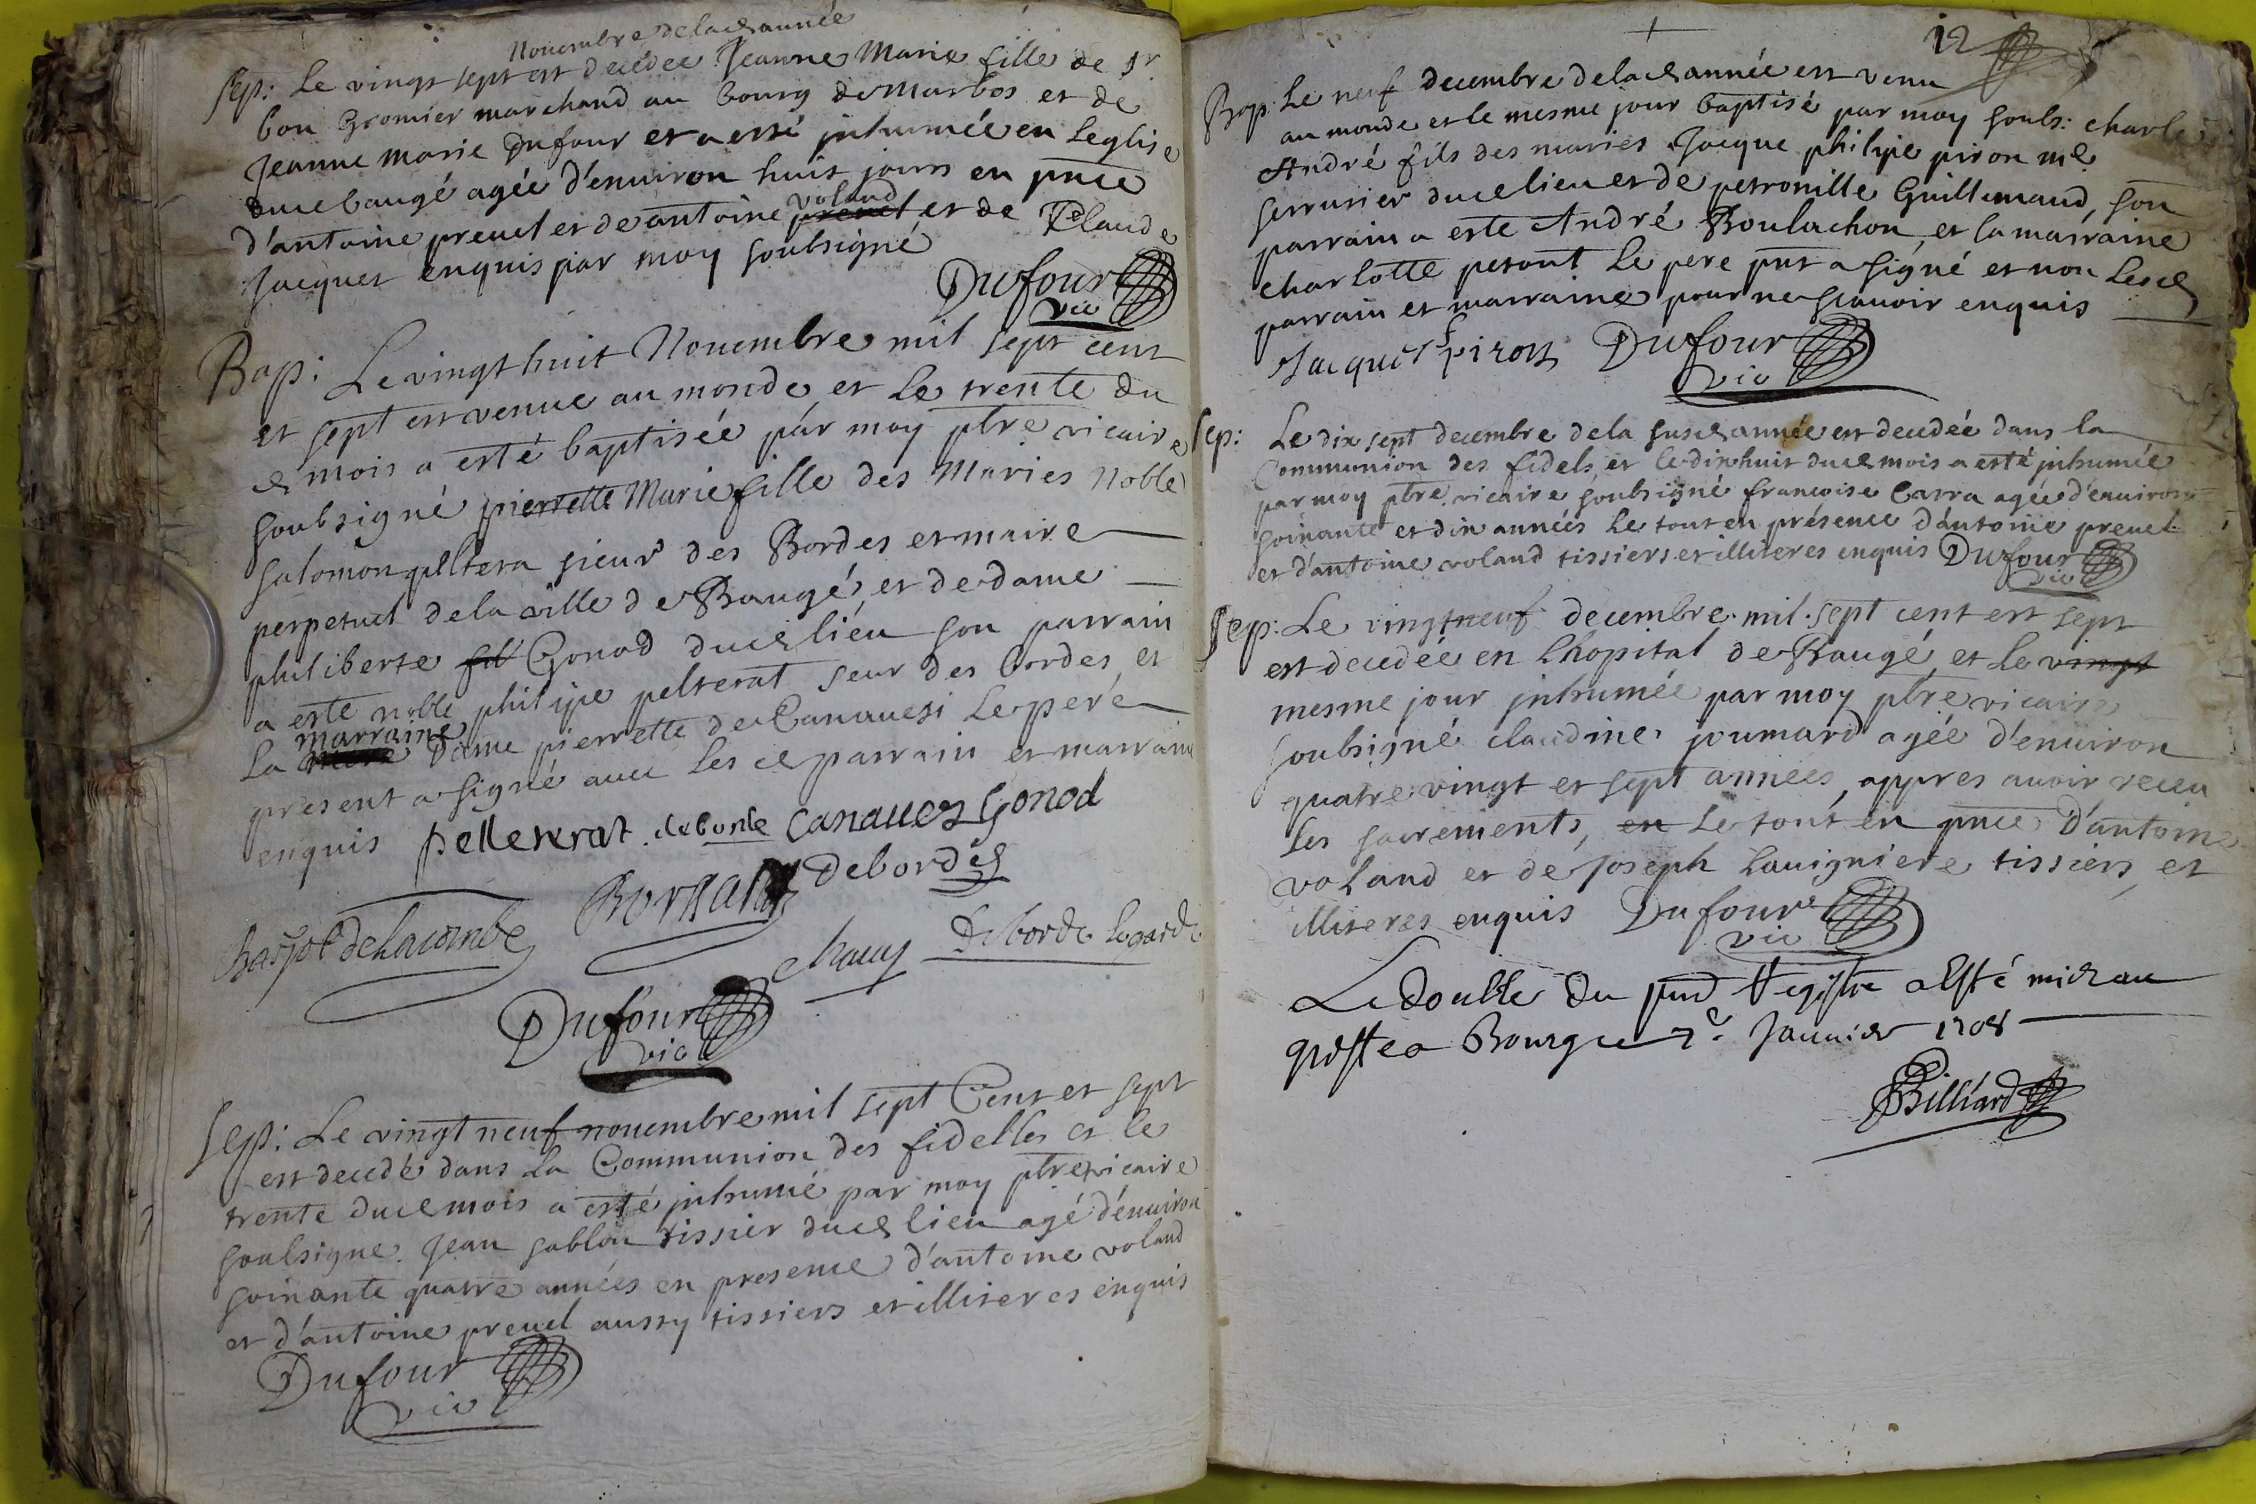 Novembre de lad année
Sep: Le vingt sept est decedée Jeanne Marie fille de sr
bon Gromier marchand au bourg de Marbos et de
Jeanne Marie Dufour et a esté inhumée en Leglise
dud baugé agée d'environ huit jours en pnce
voland
d'antoine prevel et de antoine prevel et de Claude
Jacquet enquis par moy soubsigné
Dufour
vic
Bap: Le vingt huit Novembre mil sept cent
et sept est venue au monde et le trente du
d mois a esté baptisée par moy ptre vicaire
soubsigné pierrette Marie fille des Maries Noble
salomon pelltera sieur des Bordes et maire
perpetuel de la ville de Baugé et de dame
philiberte fil Gonod dud lieu son parrain
a este noble philipe pelterat seur des bordes et
marraine
La mere Dame pierrette de Canavesi Le pere
present a signé avec les d parrain et marraine
enquis pellererat deborde Canavesy Gonod
debordes
Baspot delacombe
chaus Deborde Legarde
Dufour
vic
Sep: Le vingt neuf novembre mil sept Cent et sept
est decedé dans la Communion des fidelles et le
trente dud mois a esté inhumé par moy ptre vicaire
soubsigne Jean sablon tissier dud lieu agé d'environ
soixante quatre années en presence d'antoine voland
et d'antoine prevel aussy tissiers et illiteres enquis
Dufour
vic
12
Bap: Le neuf decembre de lad année est venu
au monde et le mesme jour baptisé par moy soubs: charles
André fils des maries Jacque philipe piron me
serrurier dud lieu et de petronille Guillemaud, son
parrain a este André Boulachon et la marraine
charlotte petout Le pere pnt a signé et non Lesd
parrain et marraine pour ne scavoir enquis
Jacque piron Dufour
vic
Sep: Le dix sept decembre de la susd année est decedée dans la
Communion des fidels et le dixhuit dud mois a esté inhumée
par moy ptre vicaire soubsigné francoise Carra agée d'environ
soixante et dix années Le tout en présence d'antoine prevel
et d'antoine voland tissiers et illiteres enquis Dufour
vic
Sep: Le vingtneuf decembre mil sept cent est sept
est decedée en Lhopital de Baugé et le vingt
mesme jour inhumée par moy ptre vicaire
soubsigné claudine joumard agée d'environ
quatre vingt et sept années, appres avoir receu
les sacrements, en Le tout en pnce d'antoine
voland et de Joseph Lavigniere tissiers et
illiteres enquis Dufour
vic
Le double du pnd Registre a Esté mis au
greffe a Bourg ce 7e Janvier 1708
Billiard